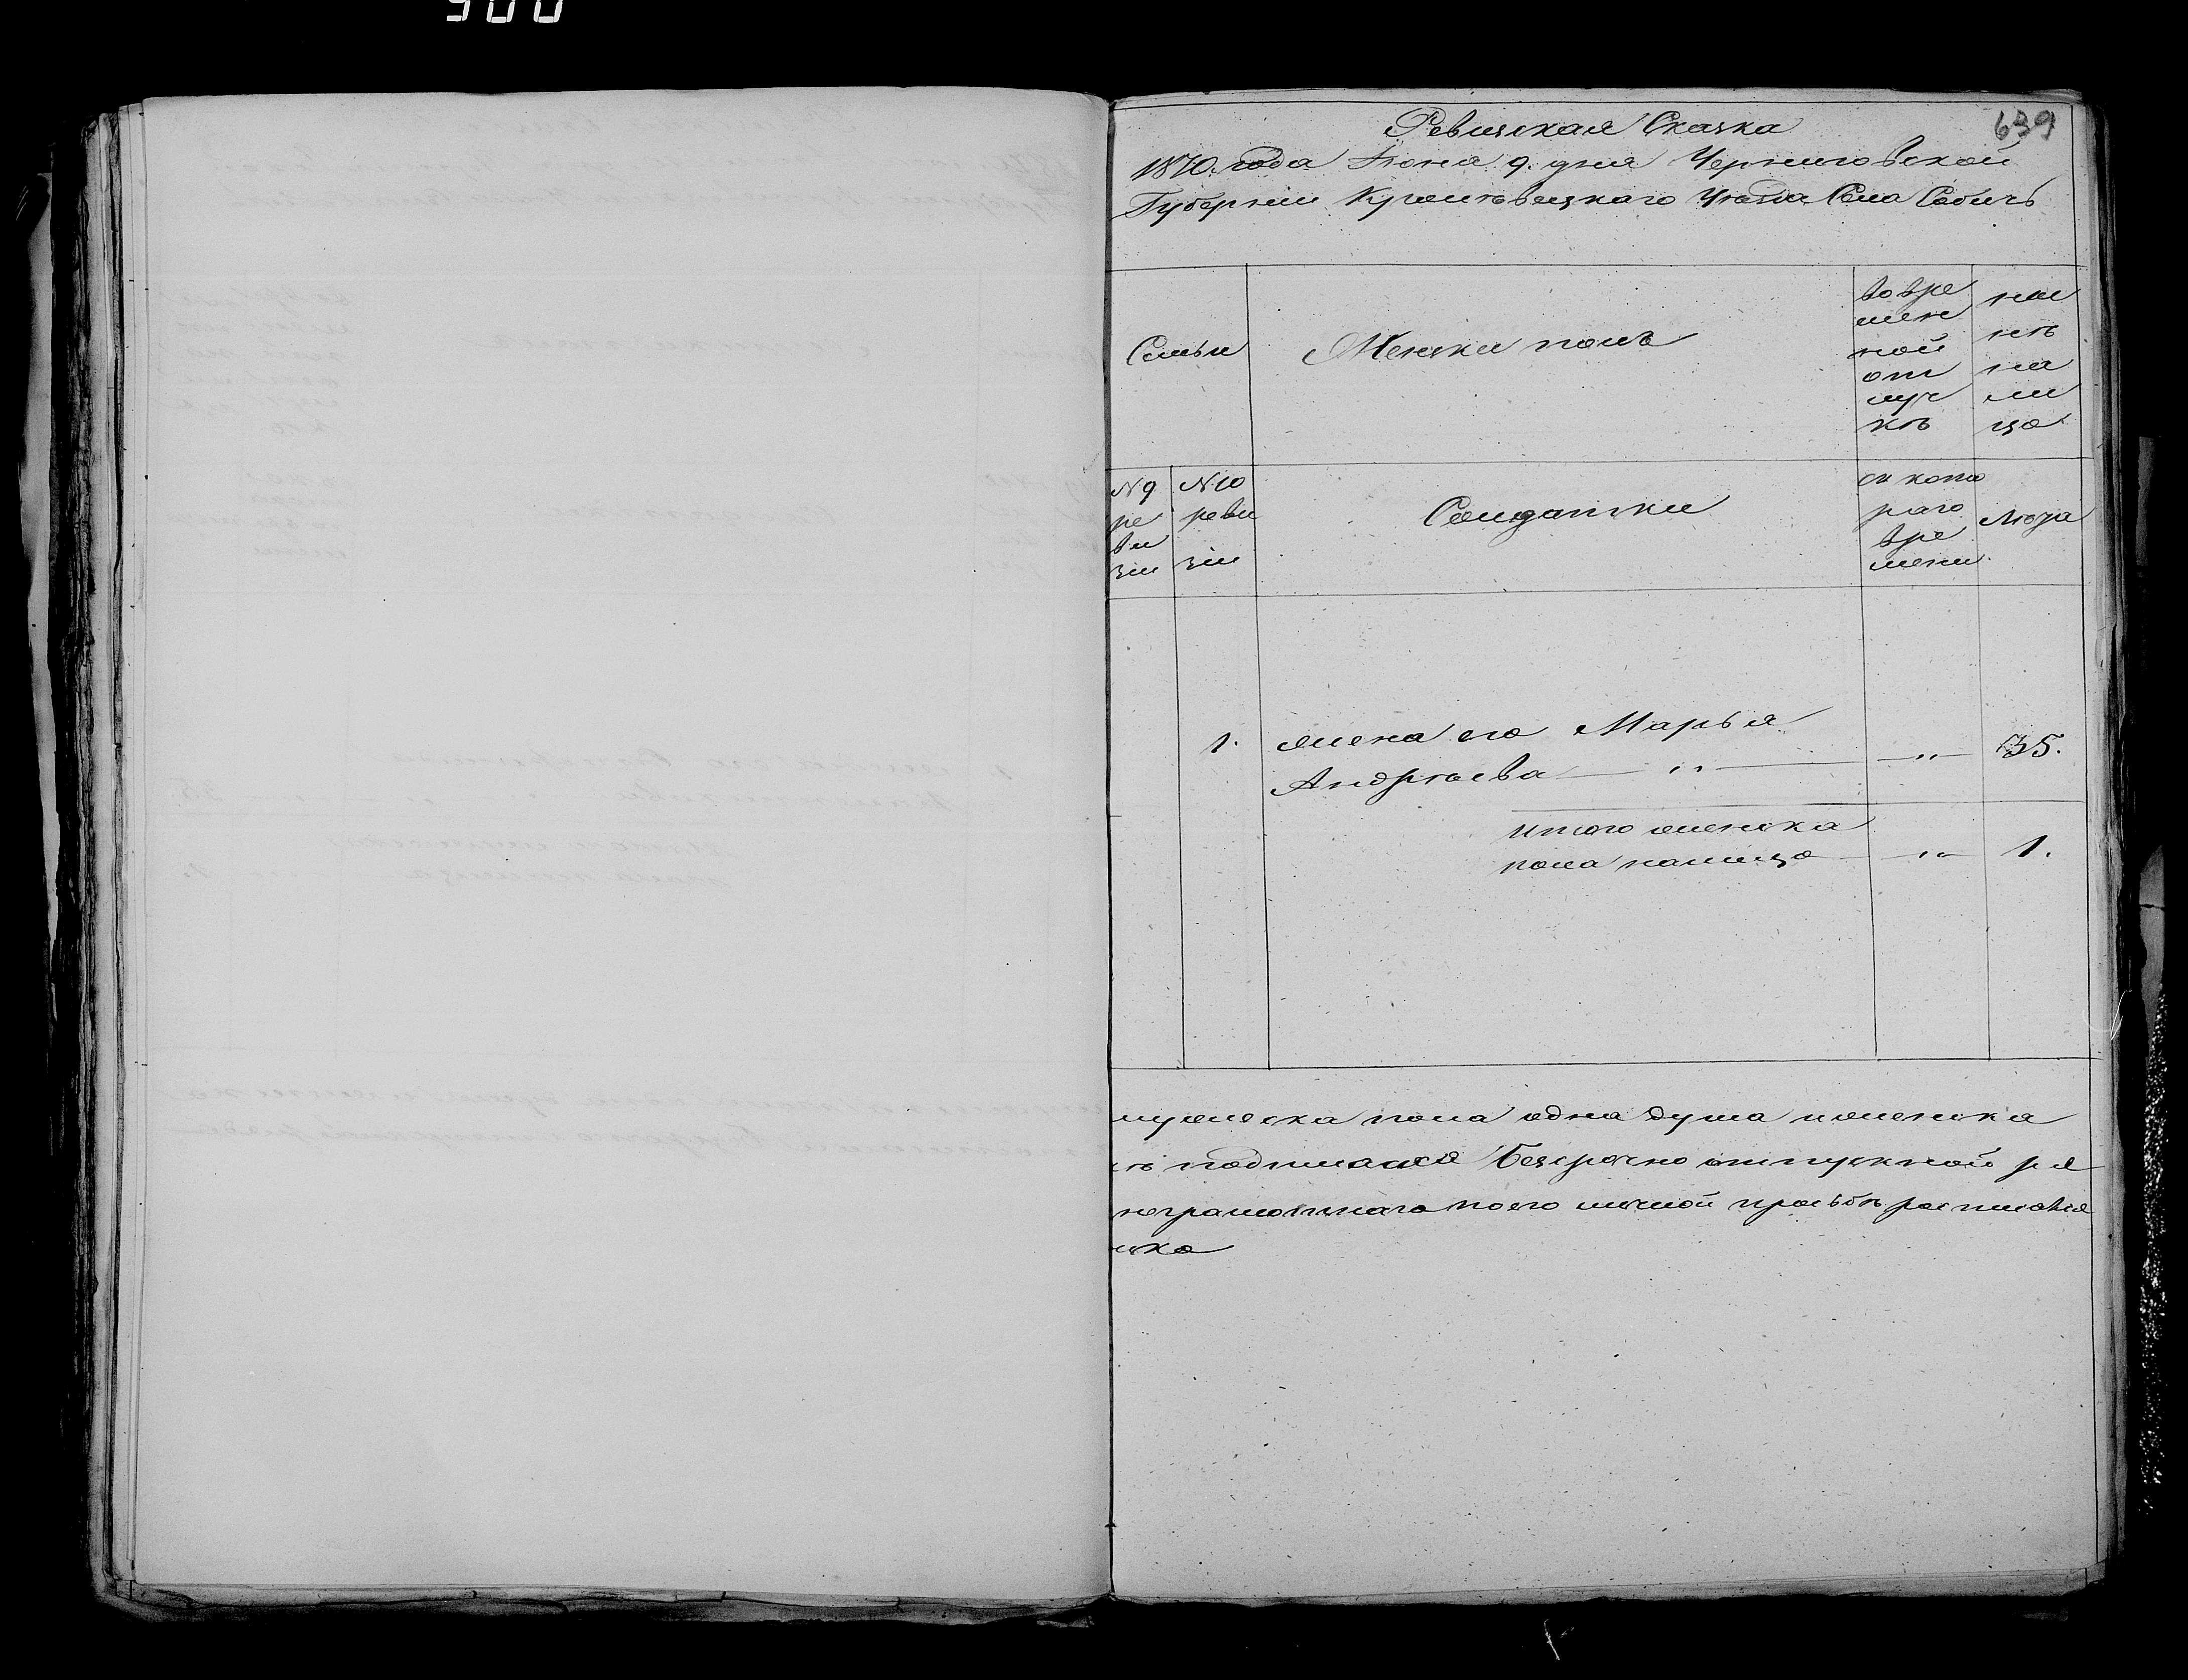 900
639
Ревизская Сказка
1870. года Іюня 9. дня Черниговской
Губерніи Кролевецкаго Уезда Села Собичь
Семьи
Женски полъ
во вре
мен
ной
от
луч
кѣ
нын
нѣ
на
ли
цо
№ 9
ре
ви
зіи
№ 10
реви
зіи
Солдатки
съ кото
раго
вре
мени
Лѣта
1. жена его Марья
Андреева — " — — " — 35.
итого женска
пола налицо — " — 1.
мужеска пола одна душа и женска
подписался Безсрочно отпускной ря
неграмотнаго по его личной прозьбѣ росписался